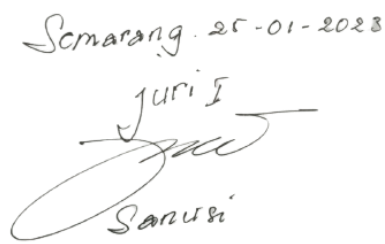 Semarang. 25-01-2023
Juri I
Sanusi